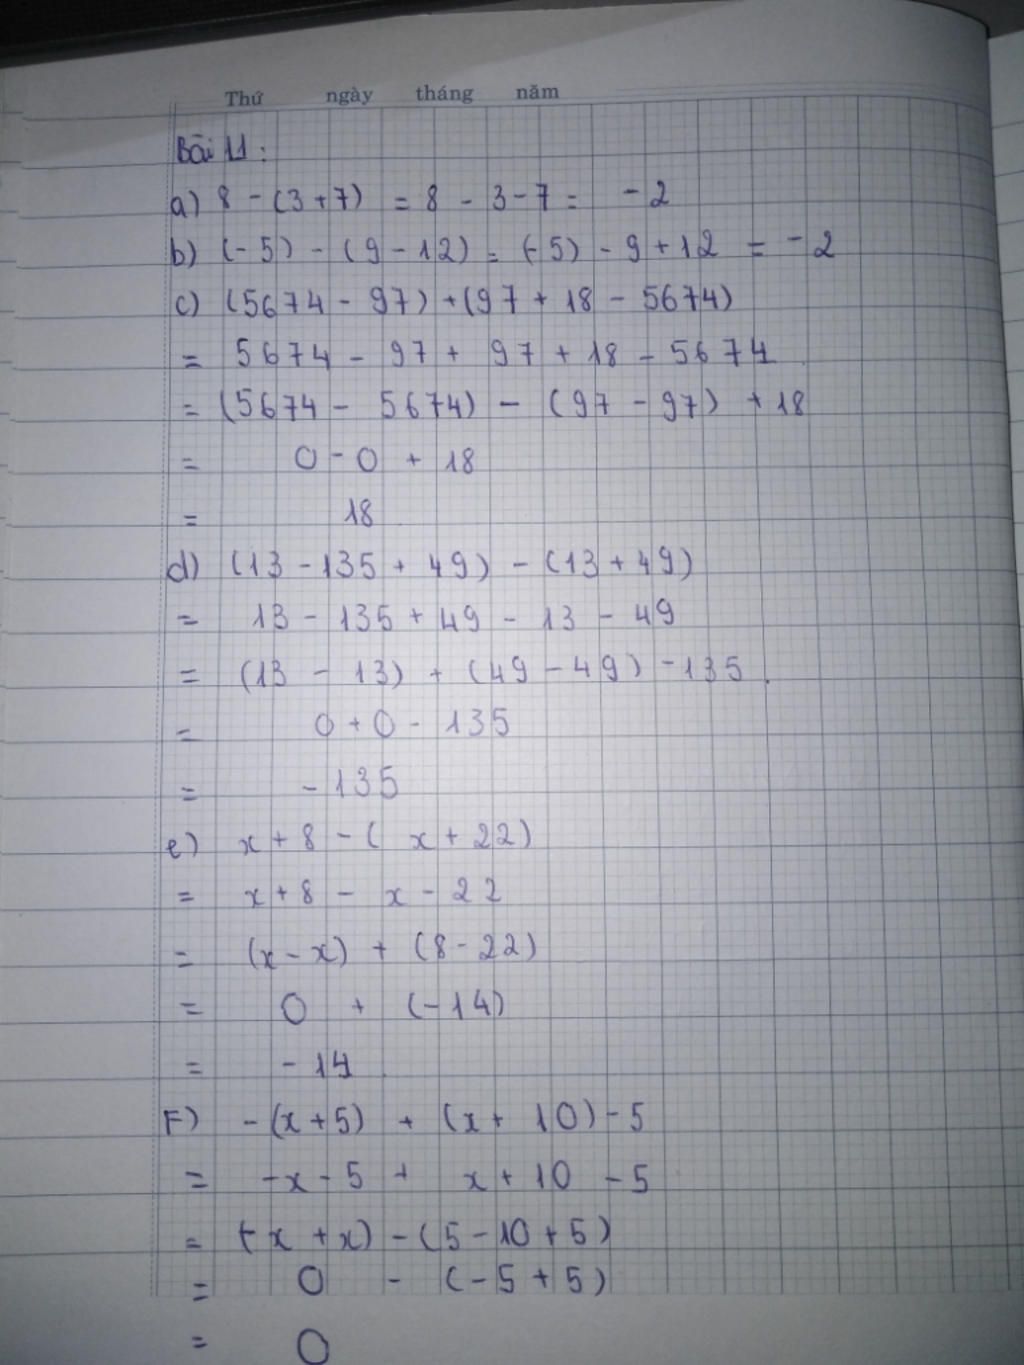 Thứ ngày tháng năm
Bài 11:
a) 8 - (3 + 7) = 8 - 3 - 7 = - 2
b) (- 5) - (9 - 12) = (- 5) - 9 + 12 = - 2
c) (5674 - 97) + (97 + 18 - 5674)
= 5674 - 97 + 97 + 18 - 5674
= (5674 - 5674) - (97 - 97) + 18
= 0 - 0 + 18
= 18
d) (13 - 135 + 49) - (13 + 49)
= 13 - 135 + 49 - 13 - 49
= (13 - 13) + (49 - 49) - 135.
= 0 + 0 - 135
= - 135
e) x + 8 - ( x + 22)
= x + 8 - x - 22
= (x - x) + (8 - 22)
= 0 + (- 14)
= - 14.
F) - (x + 5) + (x + 10) - 5
= - x - 5 + x + 10 - 5
= (- x + x) - (5 - 10 + 5)
= 0 - (- 5 + 5)
= 0